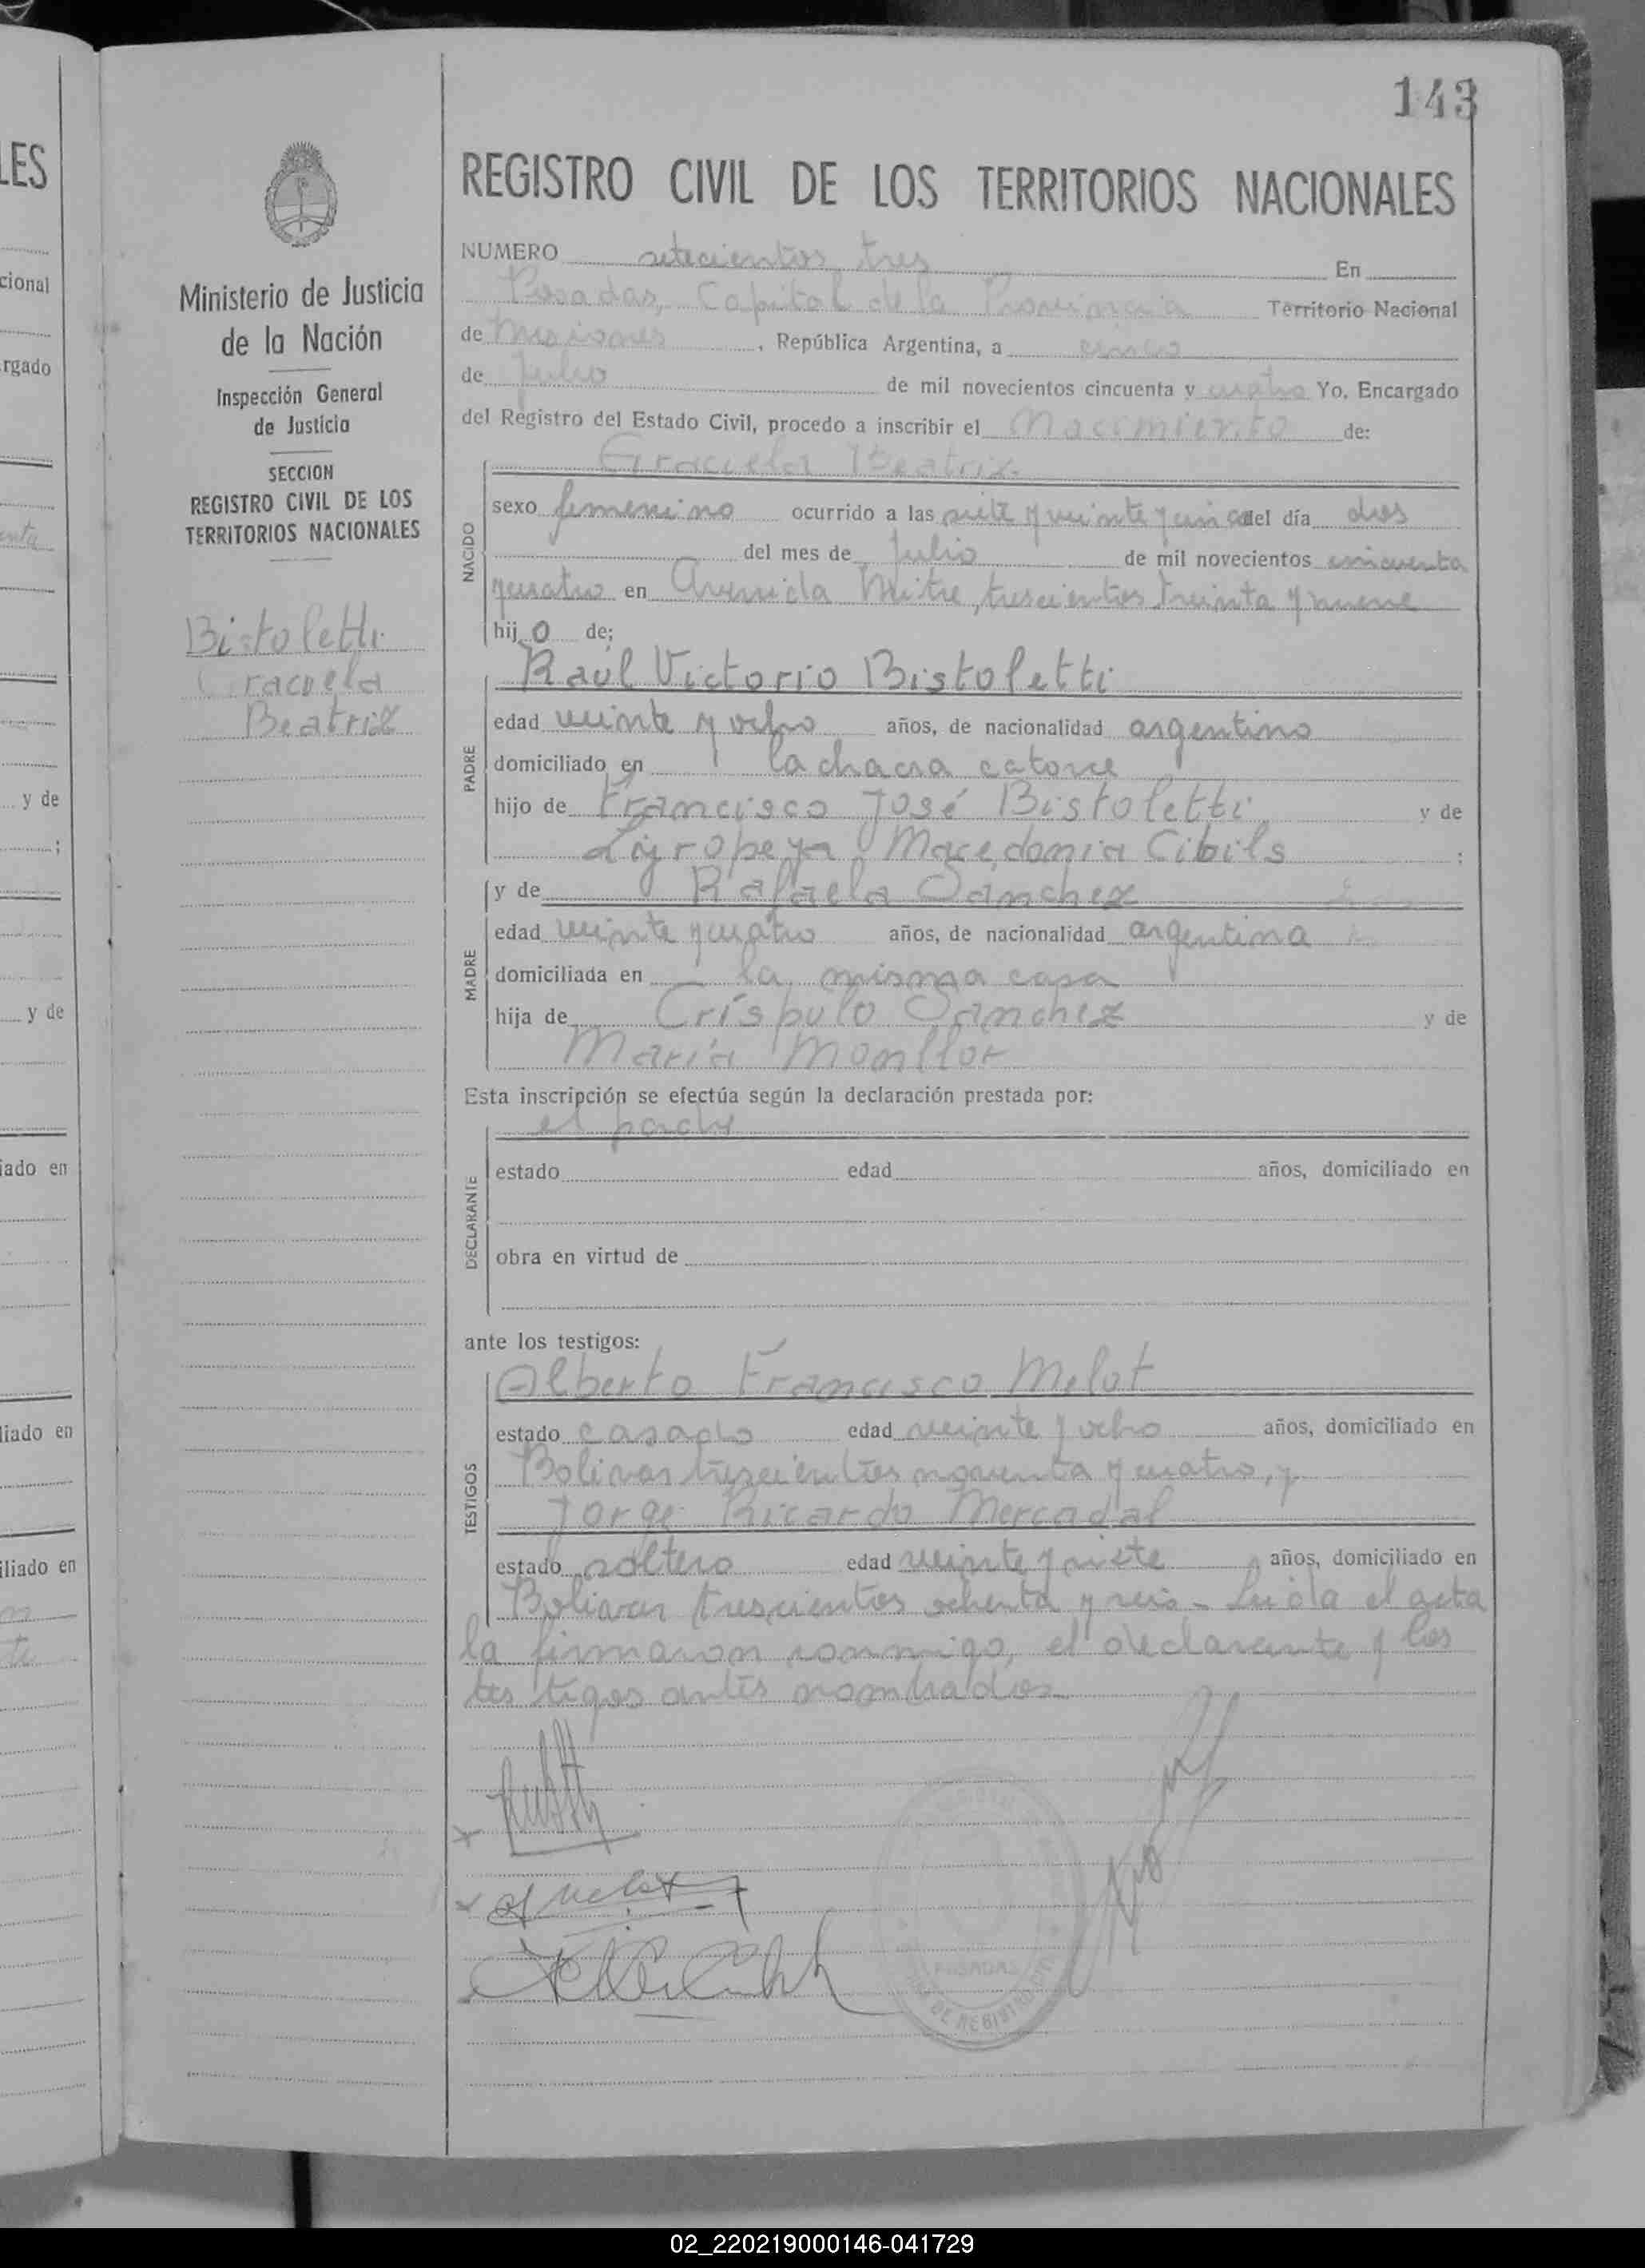 143
REGISTRO CIVIL DE LOS TERRITORIOS NACIONALES
NUMERO setecientos tres En
Posadas, Capital de la Provincia Territorio Nacional
de Misiones, República Argentina, a cinco
de Julio de mil novecientos cincuenta y cuatro Yo, Encargado
del Registro del Estado Civil, procedo a inscribir el Nacimiento de:
Graciela Beatriz
NACIDO
sexo femenino ocurrido a las siete y veinte y cinco del día dos
del mes de Julio de mil novecientos cincuenta
y cuatro en Avenida Mitre, trescientos treinta y nueve
hij o de;
Raúl Victorio Bistoletti
PADRE
edad veinte y ocho años, de nacionalidad argentino
domiciliado en la chacra catorce
hijo de Francisco José Bistoletti y de
Ligropeya Macedonia Cibils ;
MADRE
y de Rafaela Sánchez
edad veinte y cuatro años, de nacionalidad argentina
domiciliada en la misma casa
hija de Críspulo Sánchez y de
María Monllor
Esta inscripción se efectúa según la declaración prestada por:
el padre
DECLARANTE
estado edad años, domiciliado en
obra en virtud de
ante los testigos:
Alberto Francisco Melot
TESTIGOS
estado casado edad veinte y ocho años, domiciliado en
Bolivar trescientos noventa y cuatro, y
Jorge Ricardo Mercadal
estado soltero edad veinte y siete años, domiciliado en
Bolivar trescientos ochenta y seis - Leida el acta
la firmaron conmigo, el declarante y los
testigos antes nombrados
POSADAS
Ministerio de Justicia
de la Nación
Inspección General
de Justicia
SECCION
REGISTRO CIVIL DE LOS
TERRITORIOS NACIONALES
Bistoletti
Graciela
Beatriz
LES
cional
rgado
y de
;
y de
iado en
liado en
iliado en
02_220219000146-041729